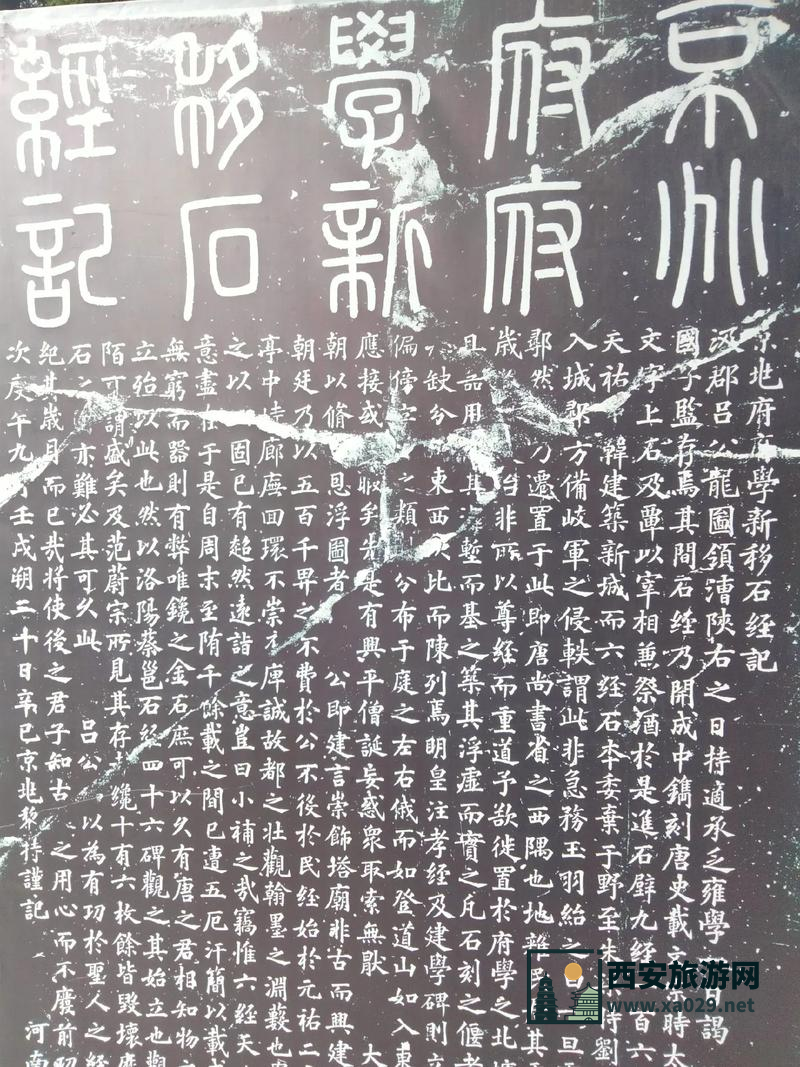 京兆
府府
學新
移石
經記
京兆府府學新移石經記
汲郡呂公龍圖領漕陜右之日持適承乏雍學謁
國子監存焉其間石經乃開成中鐫刻唐史載文宗時太
文字上石及覃以宰相兼祭酒於是進石壁九經百六
天祐韓建築新城而六經石本委棄于野至朱時劉
入城鄩方備岐軍之侵軼謂此非急務玉羽紿之曰一旦
鄩然乃遷置于此即唐尚書省之西隅也地雜民其
歲殆非所以尊經而重道予欲徙置於府學之北墉
且用其塹而基之築其浮虛而實之凡石刻之偃者
缺分東西次比而陳列焉明皇注孝經及建學碑則立
偏傍字之類分布于庭之左右儼而如登道山如入東
應接或取矣先是有興平僧誕妄惑衆取索無猒 大
朝以脩恩浮圖者 公即建言崇飾塔廟非古而興建
朝廷乃以五百千畀之不費於公不役於民經始於元祐二
亭中峙廊廡回環不崇不庳誠故都之壯觀翰墨之淵藪也
之以固已有趍然遠詣之意豈曰小補之哉竊惟六經天
意盡在于是自周末至隋千餘載之間已遭五厄汗簡以載
無窮而器則有弊唯鑱之金石庶可以久有唐之君相知物
立殆以此也然以洛陽蔡邕石經四十六碑觀之其始立也觀
陌可謂盛矣及范蔚宗所見其存纔十有六枚餘皆毀壞磨
石亦難必其可久此 呂公以為有功於聖人之經
絶其歲月而已哉將使後之君子知古之用心而不廢前
次庚午九月壬戌朔二十日辛巳京兆黎持謹記 河南
西安旅游网
www.xa029.net